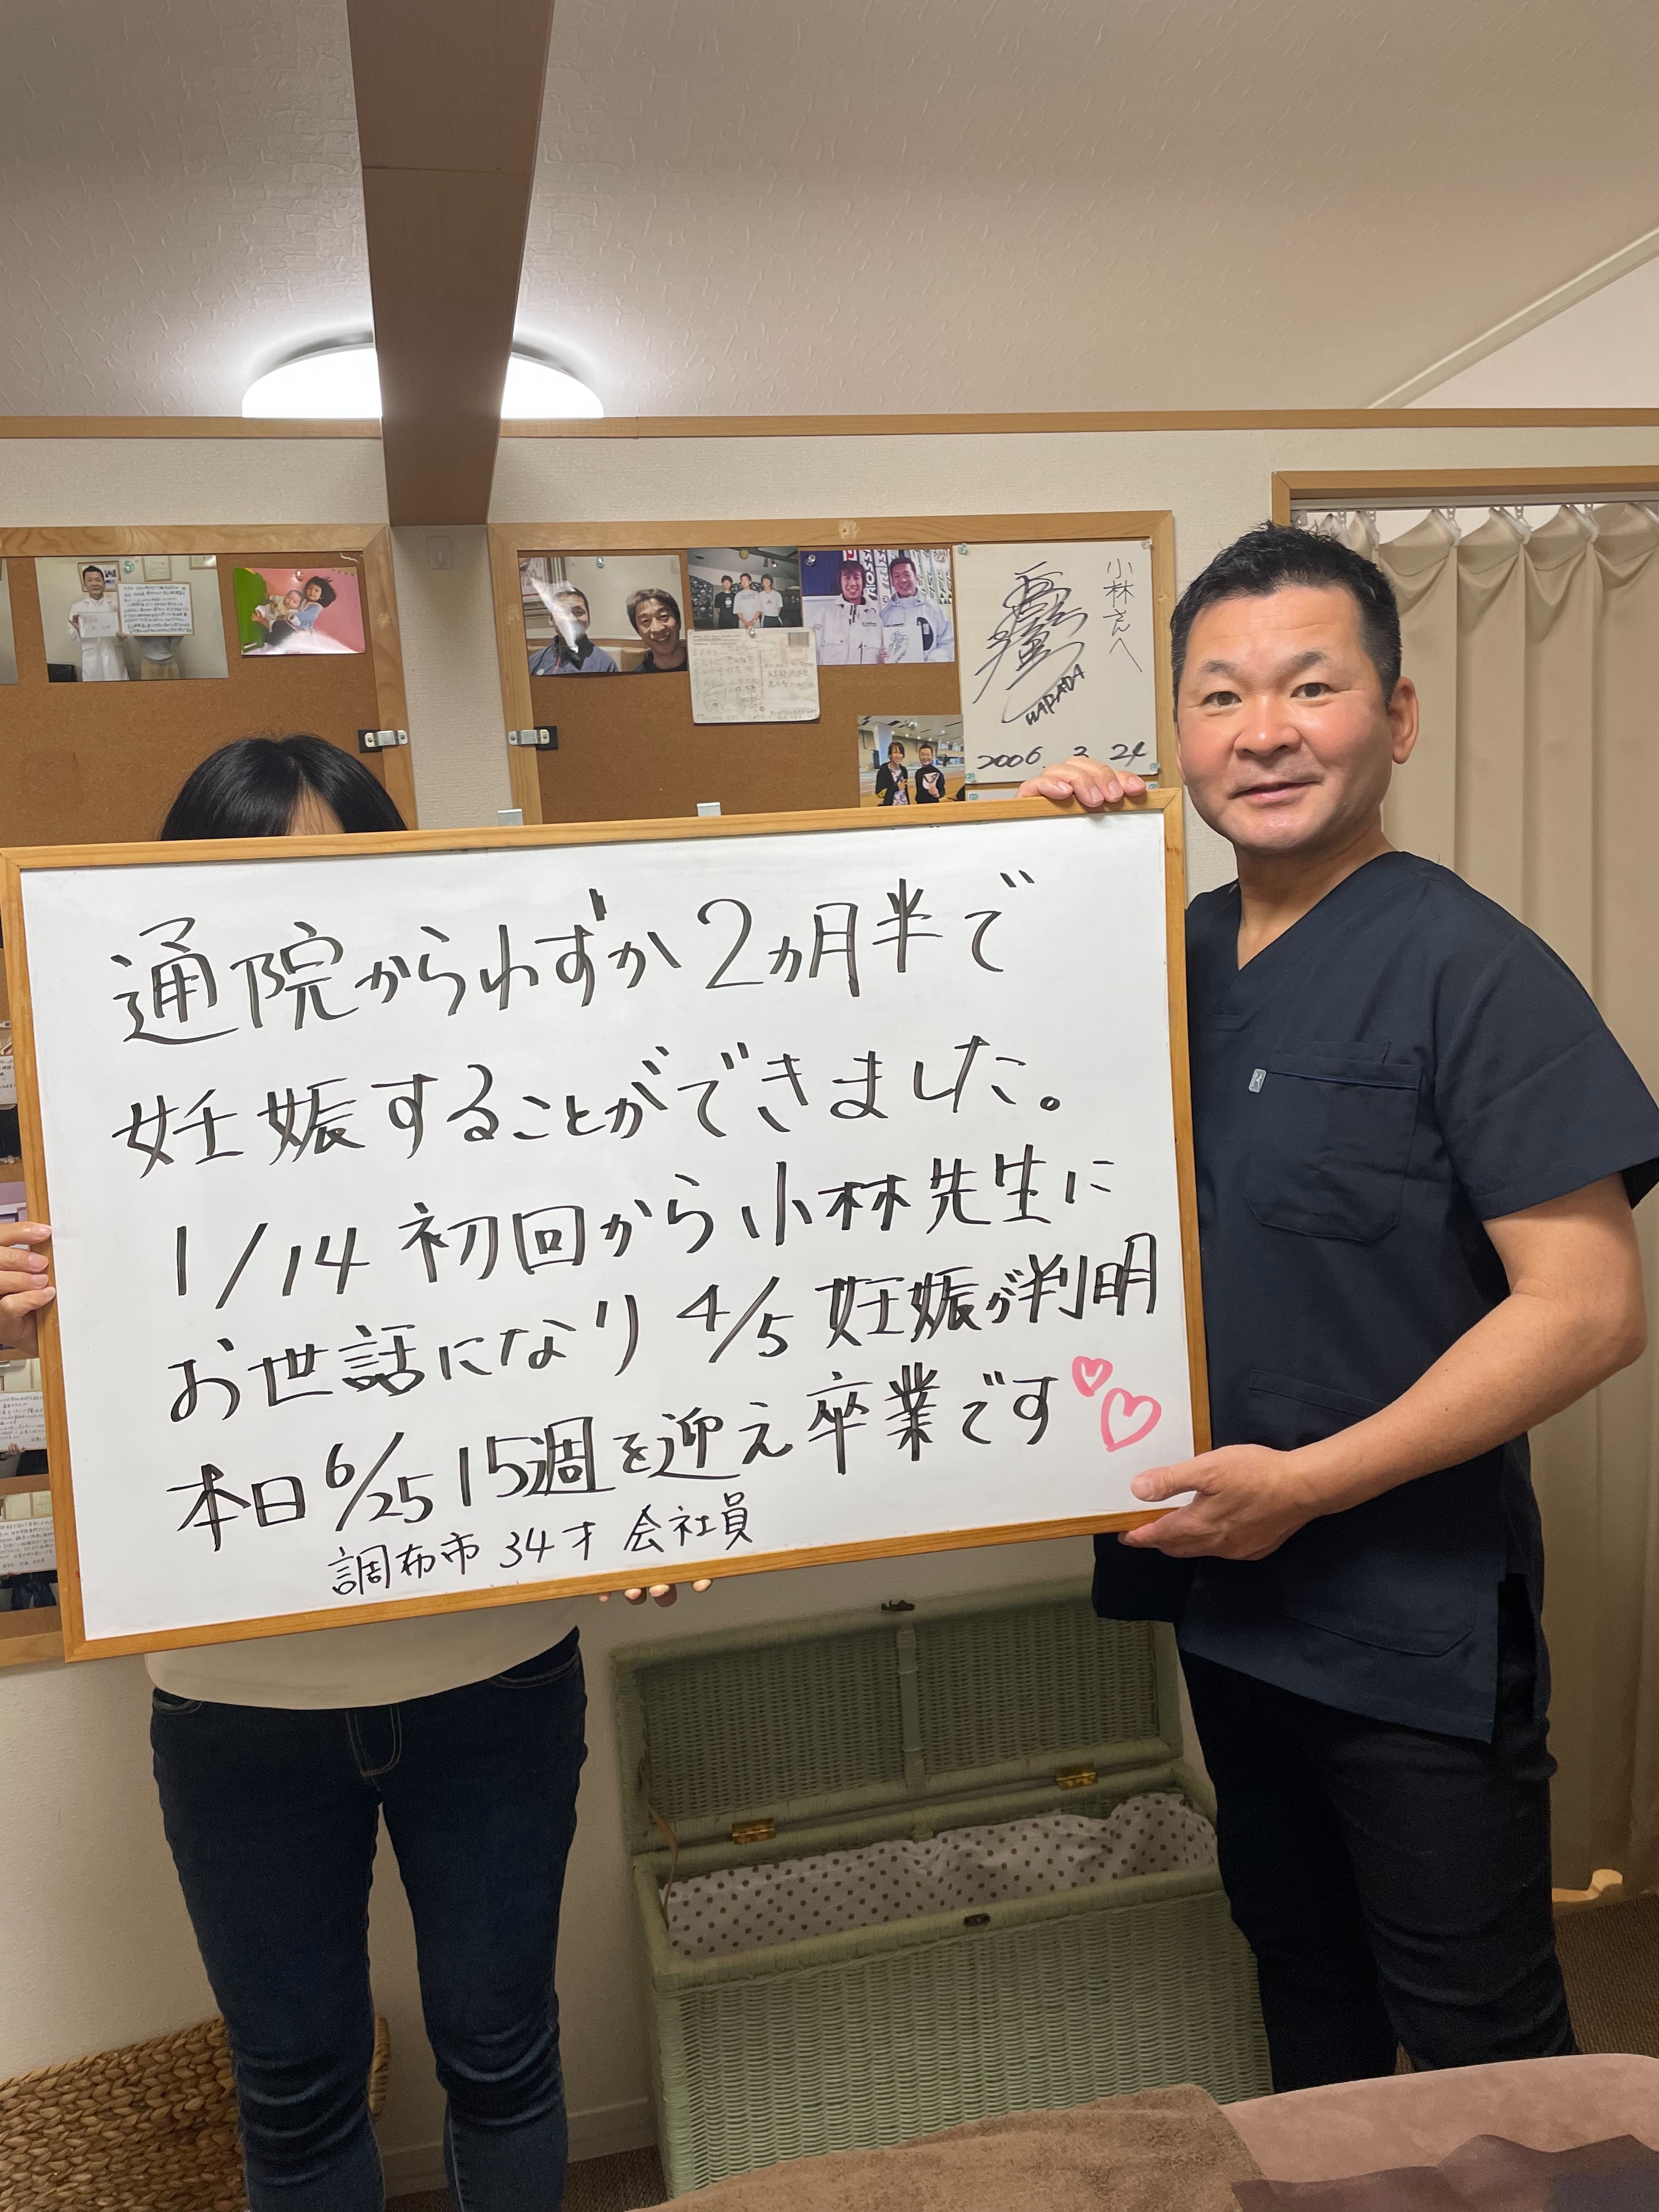 小林さんへ
HARADA
2006. 3. 24
通院からわずか2ヵ月半で
妊娠することができました。
1/14 初回から小林先生に
お世話になり 4/5 妊娠が判明
本日6/25 15週を迎え卒業です
調布市 34才 会社員